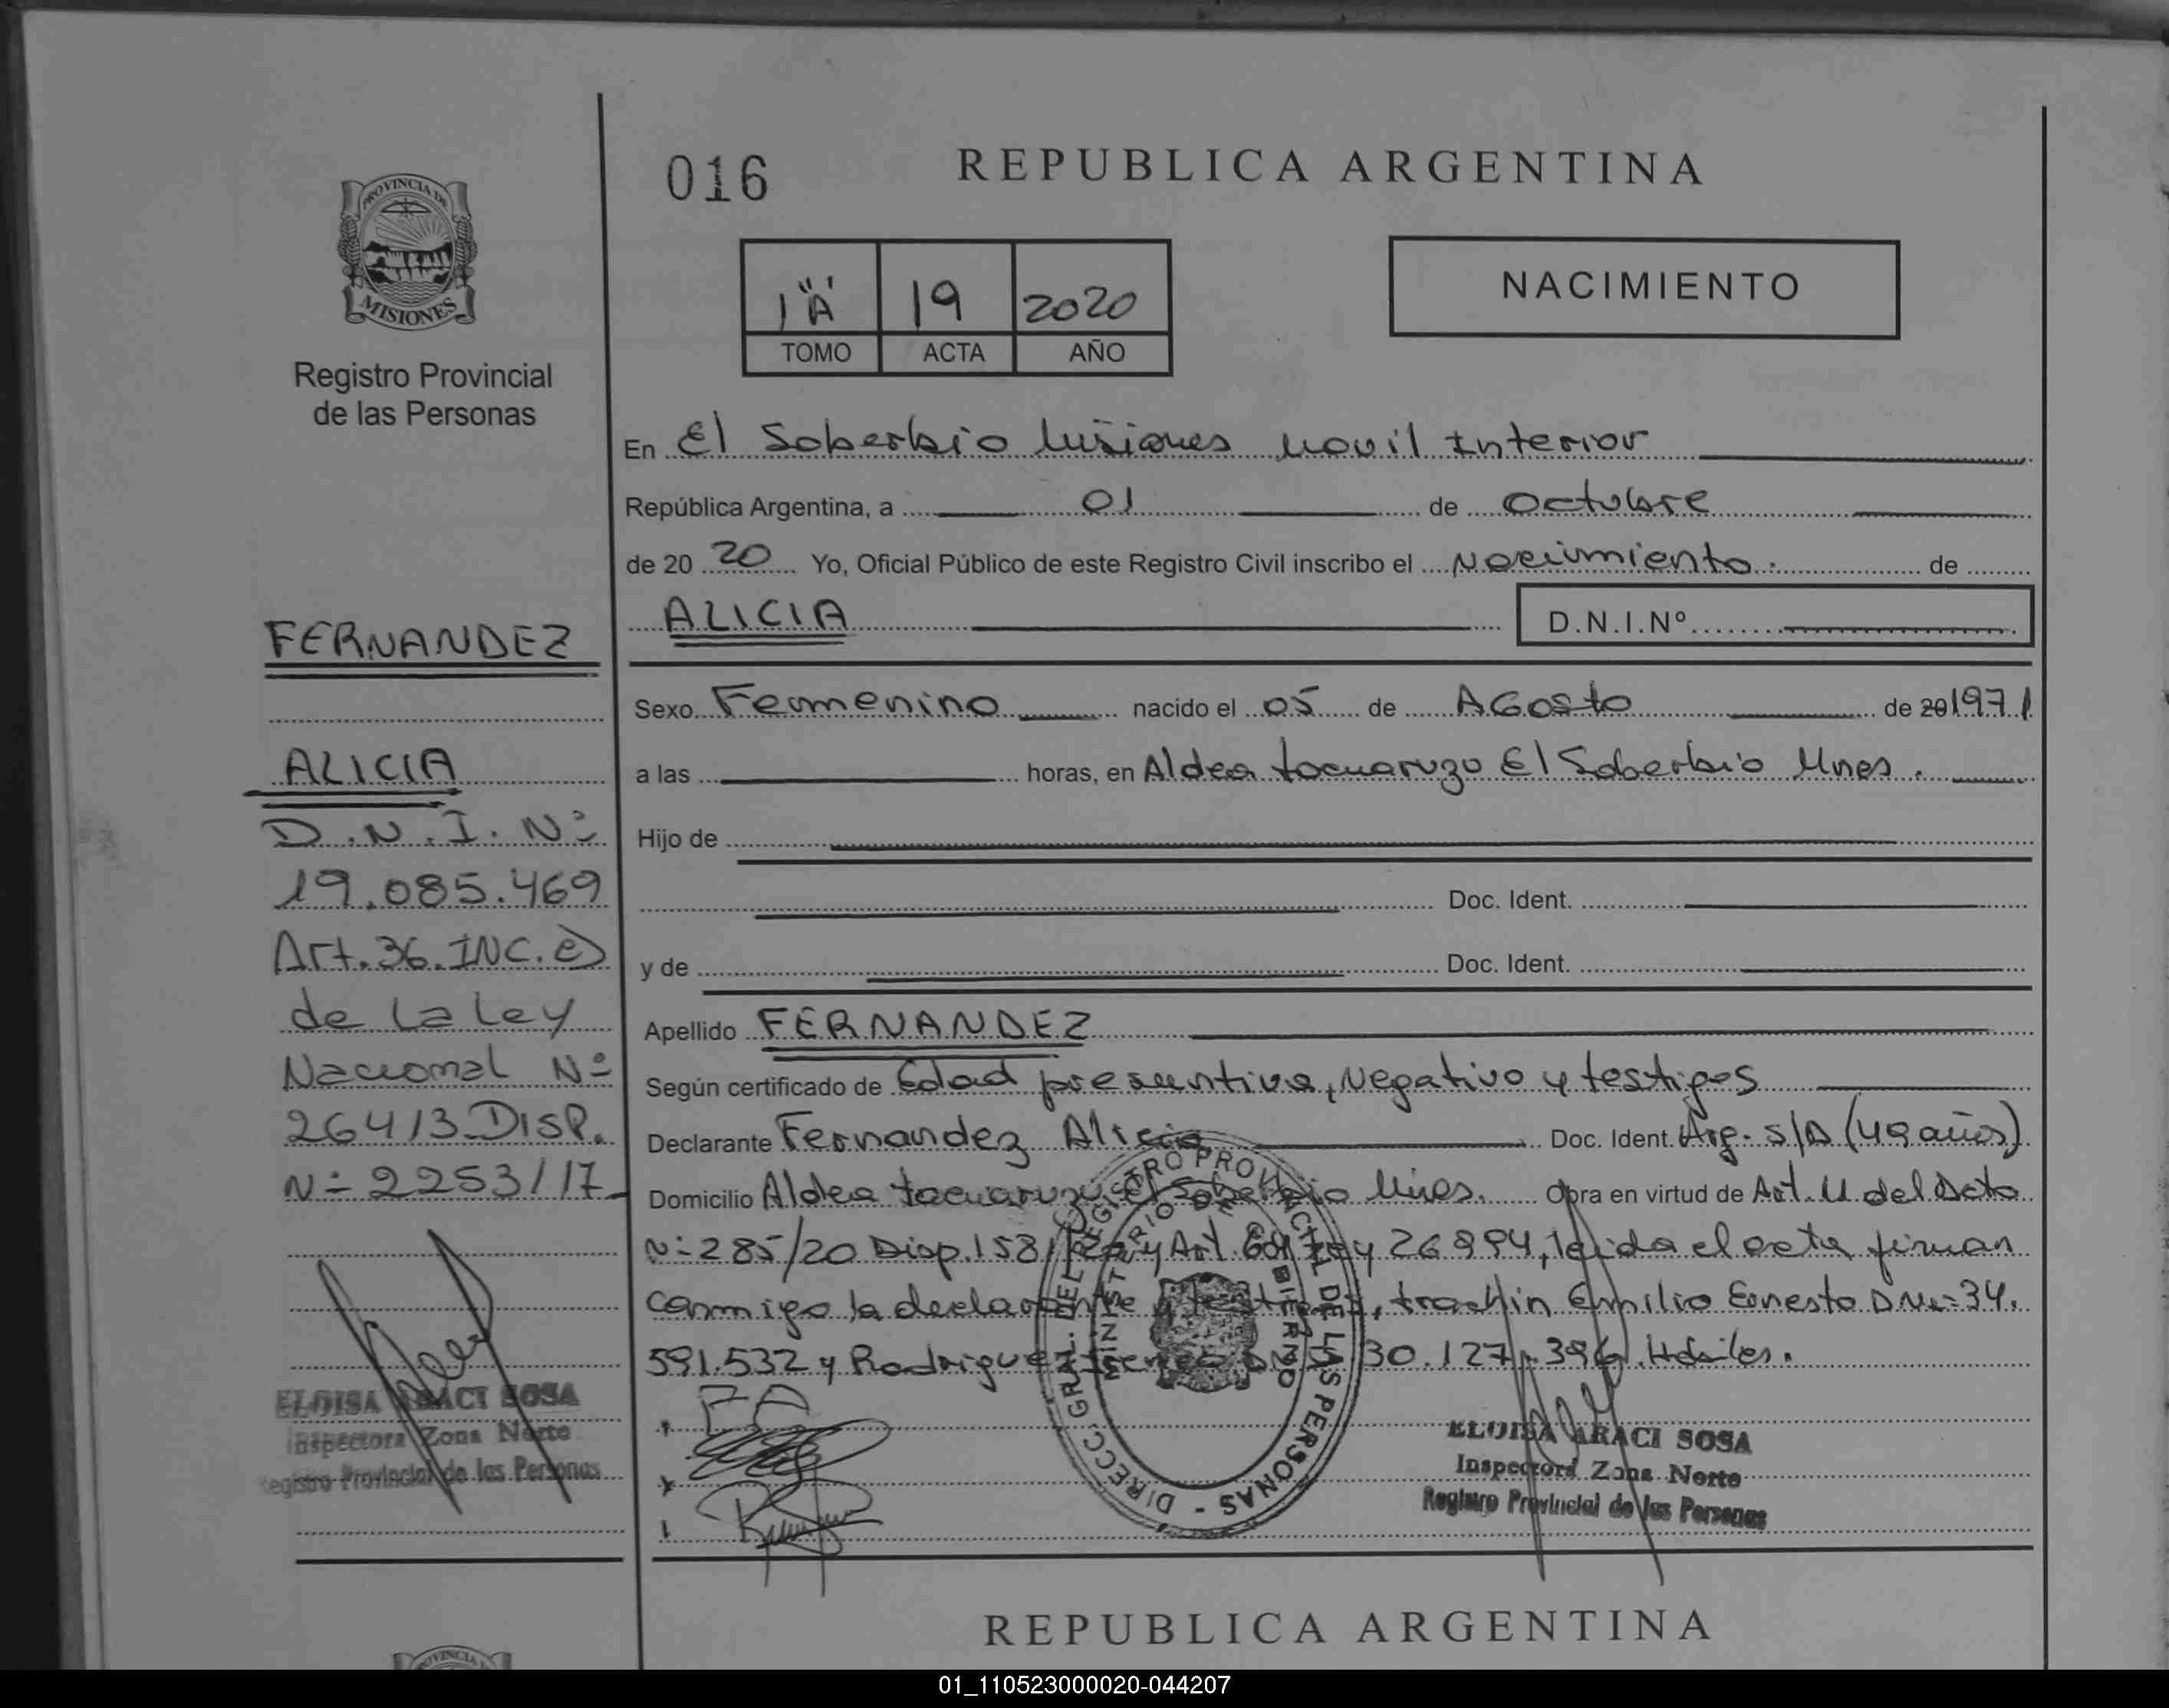 016
REPUBLICA ARGENTINA
PROVINCIA DE
MISIONES
1 "A" 19 2020
TOMO ACTA AÑO
NACIMIENTO
Registro Provincial
de las Personas
En El Soberbio Misiones Movil Interior
República Argentina, a 01 de Octubre
de 20 20 Yo, Oficial Público de este Registro Civil inscribo el Nacimiento. de
ALICIA D.N.I.Nº
FERNANDEZ
ALICIA
D.N.I. Nº
19.085.469
Art.36.INC.e)
de La Ley
Nacional Nº
26413.DISP.
Nº 2253/17
ELOISA ARACI SOSA
Inspectora Zona Norte
Registro Provincial de las Personas
Sexo Femenino nacido el 05 de AGosto de 20 1971
a las horas, en Aldea tacuaruzu El Soberbio Mnes.
Hijo de
Doc. Ident.
y de Doc. Ident.
Apellido FERNANDEZ
Según certificado de Edad presuntiva, Negativo y testigos
Declarante Fernandez Alicia Doc. Ident. Arg. S/D (49 años)
Domicilio Aldea tacuaruzu El Soberbio Mnes. Obra en virtud de Art. 11 del Dcto
Nº 285/20 Disp. 1581 y Art. Ley 26994, leida el acta firman
conmigo la declarante y testigos, trachin Emilio Ernesto DNI: 34.
591.532 y Rodriguez 30.127.396. Habiles.
FA
DIRECC. GRAL. DEL REGISTRO PROVINCIAL DE LAS PERSONAS -
MINISTERIO DE GOBIERNO
ELOISA ARACI SOSA
Inspectora Zona Norte
Registro Provincial de las Personas
REPUBLICA ARGENTINA
01_110523000020-044207